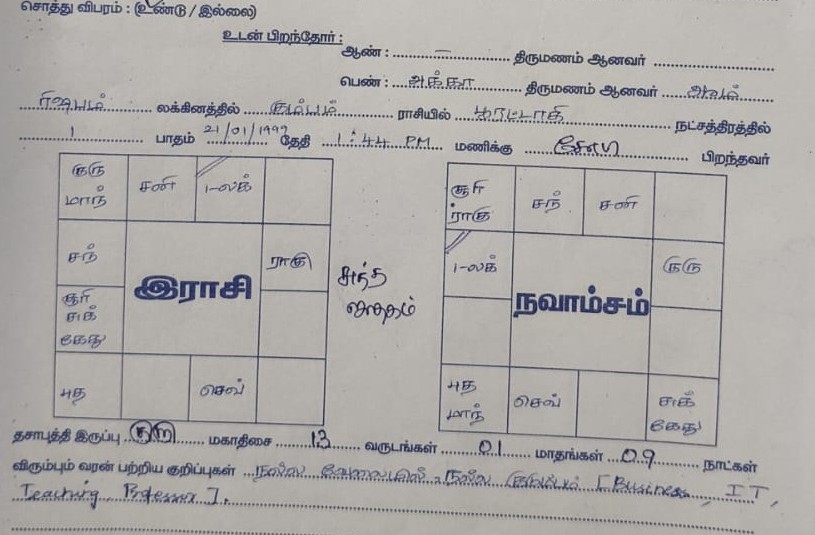 சொத்து விபரம் : (உண்டு / இல்லை)
உடன் பிறந்தோர் :
ஆண் : ..... – ..... திருமணம் ஆனவர் .....
பெண் : ..... அக்கா ..... திருமணம் ஆனவர் .....
ரிஷபம் ..... லக்கினத்தில் ..... கும்பம் ..... ராசியில் ..... பூரட்டாதி ..... நட்சத்திரத்தில்
1 ..... பாதம் 21/01/1999 தேதி ..... 1:44 PM ..... மணிக்கு ..... சேலம் ..... பிறந்தவர்
குரு மாந்
சனி
1-லக்
சந்
ராகு
சூரி சுக் கேது
இராசி
புத
செவ்
சூரி ராகு
சந்
சனி
1-லக்
குரு
நவாம்சம்
புத மாந்
செவ்
சுக் கேது
தசாபுத்தி இருப்பு ..... குரு ..... மகாதிசை ..... 13 ..... வருடங்கள் ..... 01 ..... மாதங்கள் ..... 09 ..... நாட்கள்
விரும்பும் வரன் பற்றிய குறிப்புகள் ..... நல்ல வேலையில், நல்ல குடும்பம் [Business, IT,
Teaching, Professor].